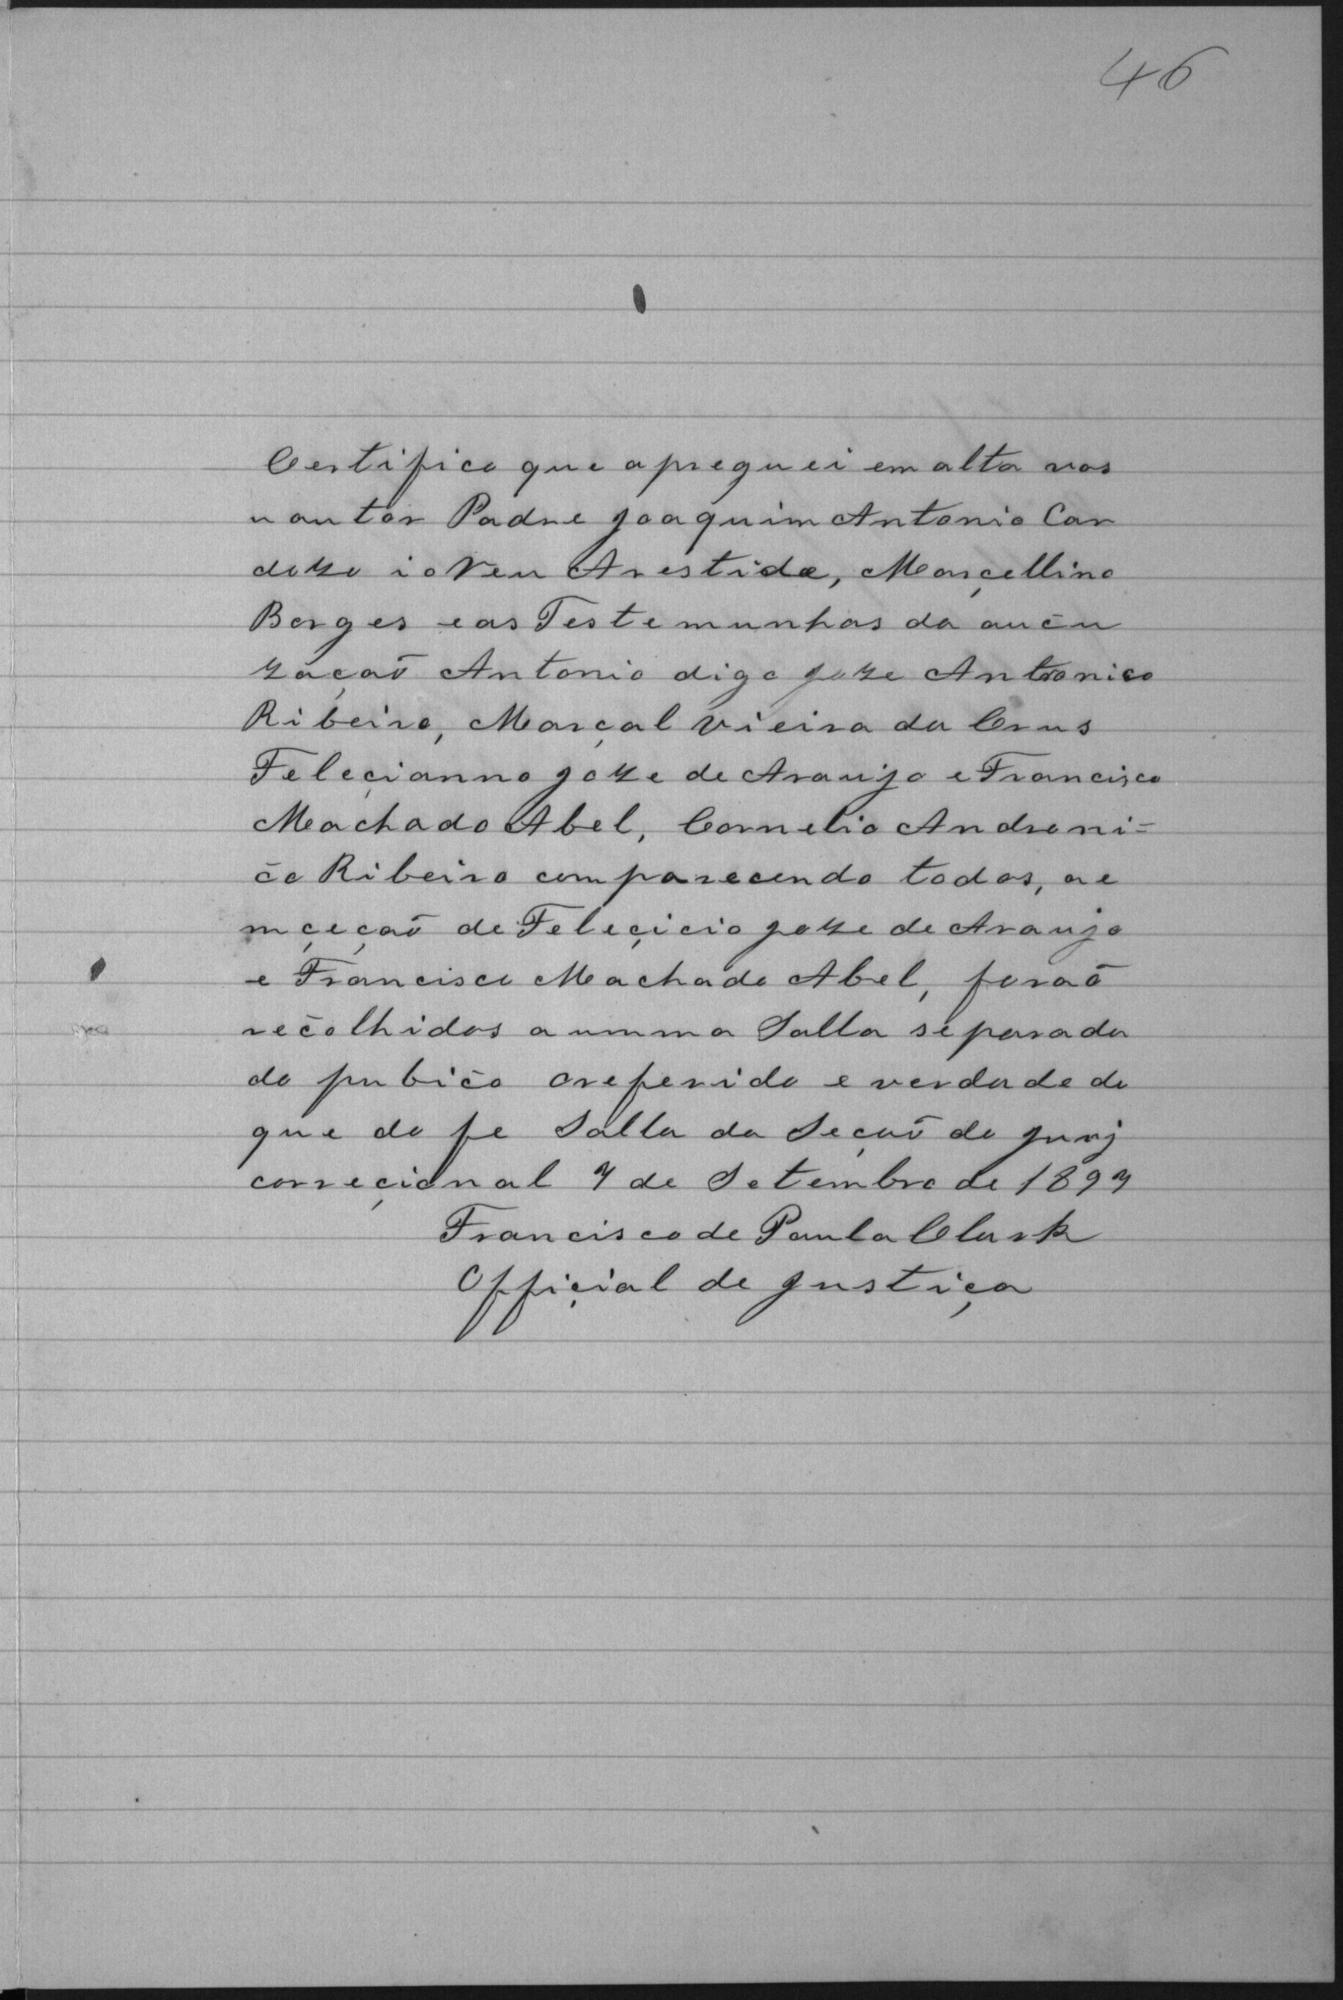 46
Certifico que apreguei em alta vos
u autor Padre Joaquim Antonio Car
dozo i o Reu Arestide, Marçellino
Borges e as Testemunhas da aucu
zaçaõ Antonio digo Joze Antonico
Ribeiro, Marçal Vieira da Crus
Feleçianno Joze de Araujo e Francisco
Machado Abel, Cornelio Androni=
co Ribeiro comparecendo todos, a e
mçeçaõ de Feleçicio Joze de Araujo
e Francisco Machado Abel, foraõ
recolhidos a umma Salla separada
do pubico o referido e verdade do
que do fe Salla da Seçaõ do Jurj
correçional 7 de Setembro de 1897
Francisco de Paula Clark
Offiçial de Justiça